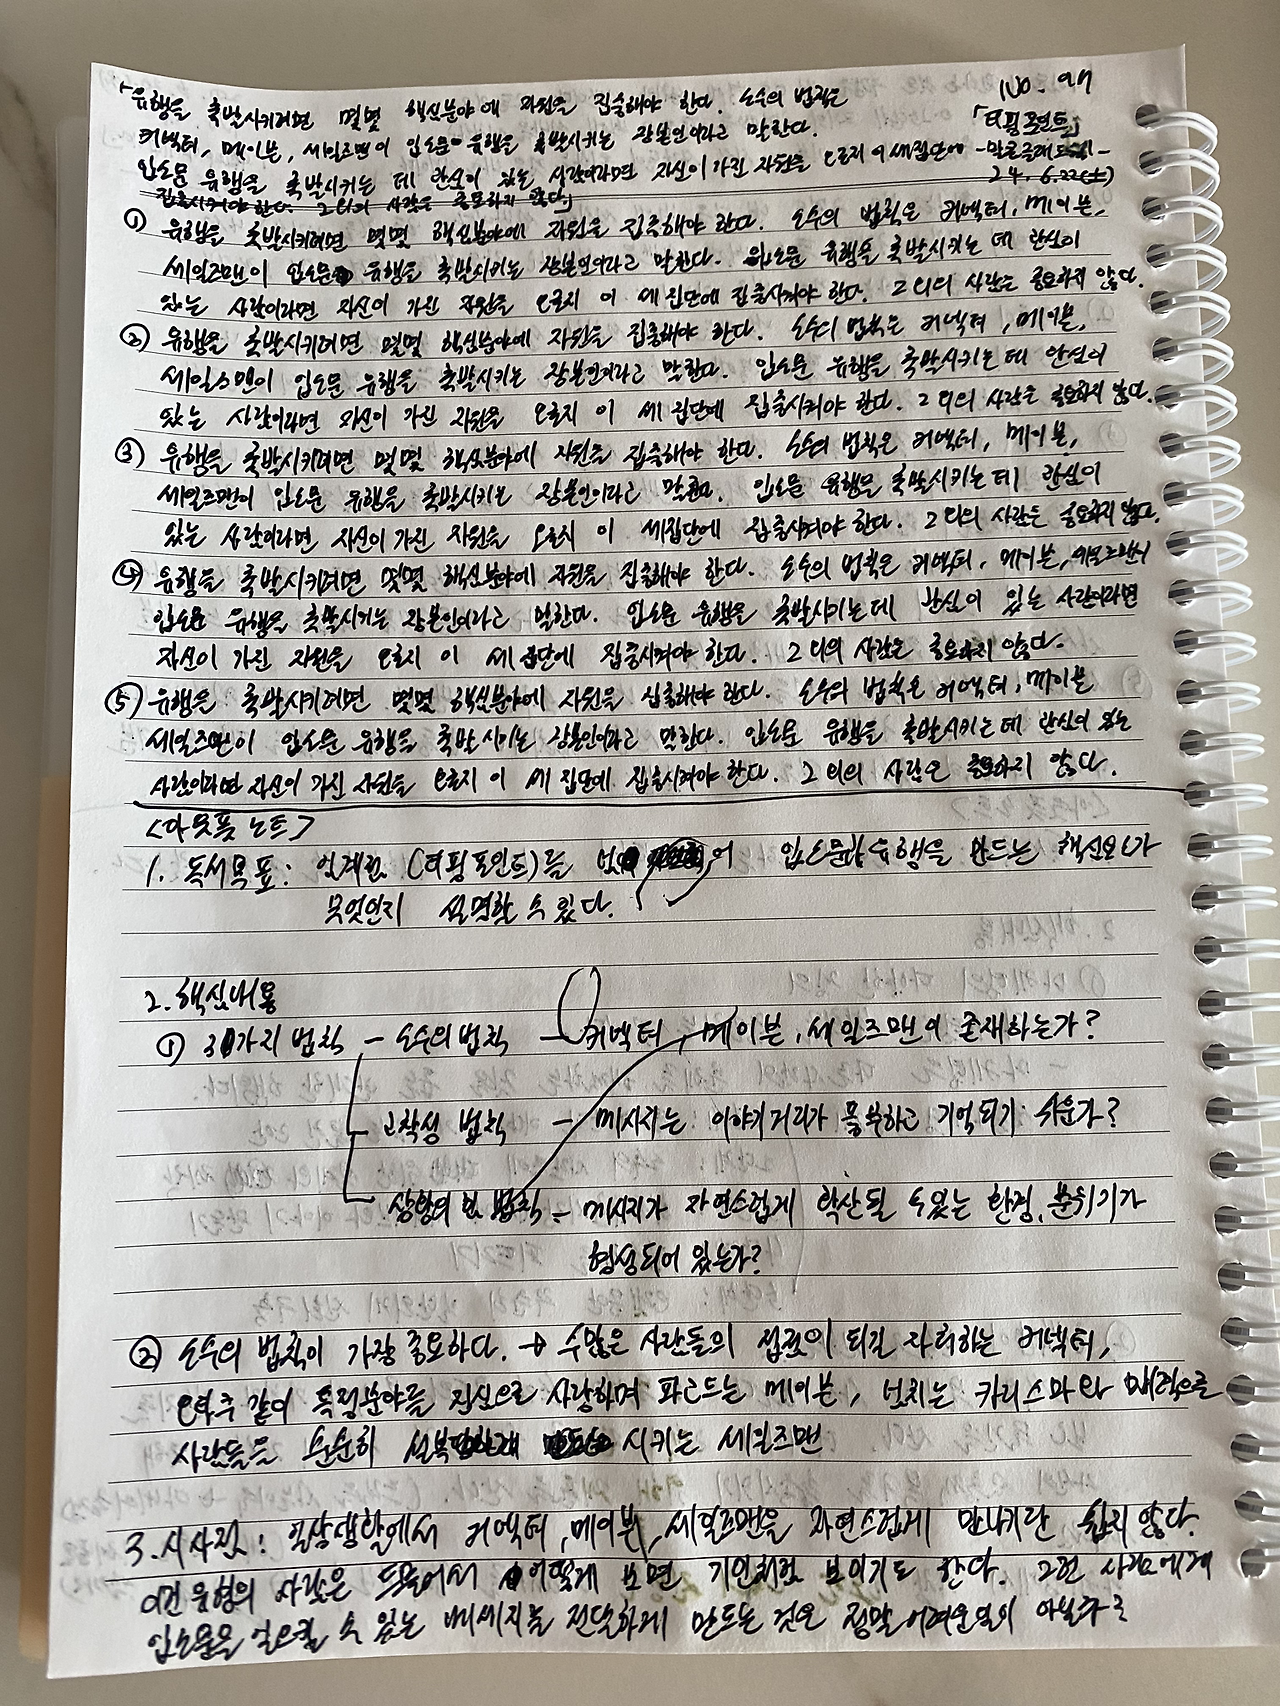 「유행을 촉발시키려면 몇몇 핵심분야에 자원을 집중해야 한다. 소수의 법칙은
No. 97
커넥터, 메이븐, 세일즈맨이 입소문 유행을 촉발시키는 장본인이라고 말한다.
「티핑 포인트」
입소문 유행을 촉발시키는 데 관심이 있는 사람이라면 자신이 가진 자원을 오로지 이 세집단에
-말콤글래드웰-
집중시켜야 한다. 그 외의 사람은 중요하지 않다」
24. 6.22(土)
① 유행을 촉발시키려면 몇몇 핵심분야에 자원을 집중해야 한다. 소수의 법칙은 커넥터, 메이븐,
세일즈맨이 입소문 유행을 촉발시키는 장본인이라고 말한다. 입소문 유행을 촉발시키는 데 관심이
있는 사람이라면 자신이 가진 자원을 오로지 이 세 집단에 집중시켜야 한다. 그 외의 사람은 중요하지 않다.
② 유행을 촉발시키려면 몇몇 핵심분야에 자원을 집중해야 한다. 소수의 법칙은 커넥터, 메이븐,
세일즈맨이 입소문 유행을 촉발시키는 장본인이라고 말한다. 입소문 유행을 촉발시키는 데 관심이
있는 사람이라면 자신이 가진 자원을 오로지 이 세 집단에 집중시켜야 한다. 그 외의 사람은 중요하지 않다.
③ 유행을 촉발시키려면 몇몇 핵심분야에 자원을 집중해야 한다. 소수의 법칙은 커넥터, 메이븐,
세일즈맨이 입소문 유행을 촉발시키는 장본인이라고 말한다. 입소문 유행을 촉발시키는데 관심이
있는 사람이라면 자신이 가진 자원을 오로지 이 세집단에 집중시켜야 한다. 그 외의 사람은 중요하지 않다.
④ 유행을 촉발시키려면 몇몇 핵심분야에 자원을 집중해야 한다. 소수의 법칙은 커넥터, 메이븐, 세일즈맨이
입소문 유행을 촉발시키는 장본인이라고 말한다. 입소문 유행을 촉발시키는데 관심이 있는 사람이라면
자신이 가진 자원을 오로지 이 세 집단에 집중시켜야 한다. 그 외의 사람은 중요하지 않다.
⑤ 유행을 촉발시키려면 몇몇 핵심분야에 자원을 집중해야 한다. 소수의 법칙은 커넥터, 메이븐
세일즈맨이 입소문 유행을 촉발시키는 장본인이라고 말한다. 입소문 유행을 촉발시키는 데 관심이 있는
사람이라면 자신이 가진 자원을 오로지 이 세 집단에 집중시켜야 한다. 그 외의 사람은 중요하지 않다.
<아웃풋 노트>
1. 독서목표: 임계점 (티핑포인트)를 어 입소문과 유행을 만드는 핵심요소가
무엇인지 설명할 수 있다.
2. 핵심내용
① 3가지 법칙 - 소수의 법칙 - 커넥터, 메이븐, 세일즈맨이 존재하는가?
고착성 법칙 - 메시지는 이야기거리가 풍부하고 기억되기 쉬운가?
상황의 힘 법칙 - 메시지가 자연스럽게 확산될 수 있는 환경, 분위기가
형성되어 있는가?
② 소수의 법칙이 가장 중요하다. → 수많은 사람들의 접점이 되길 자처하는 커넥터,
오타쿠 같이 특정분야를 진심으로 사랑하며 파고드는 메이븐, 넘치는 카리스마와 매력으로
사람들을 순순히 설복 시키는 세일즈맨
3. 시사점: 일상생활에서 커넥터, 메이븐, 세일즈맨을 자연스럽게 만나기란 쉽지 않다.
이런 유형의 사람은 드물어서 어떻게 보면 기인처럼 보이기도 한다. 그런 사람에게
입소문을 일으킬 수 있는 메세지를 전달하게 만드는 것은 정말 어려운일이 아닐까?